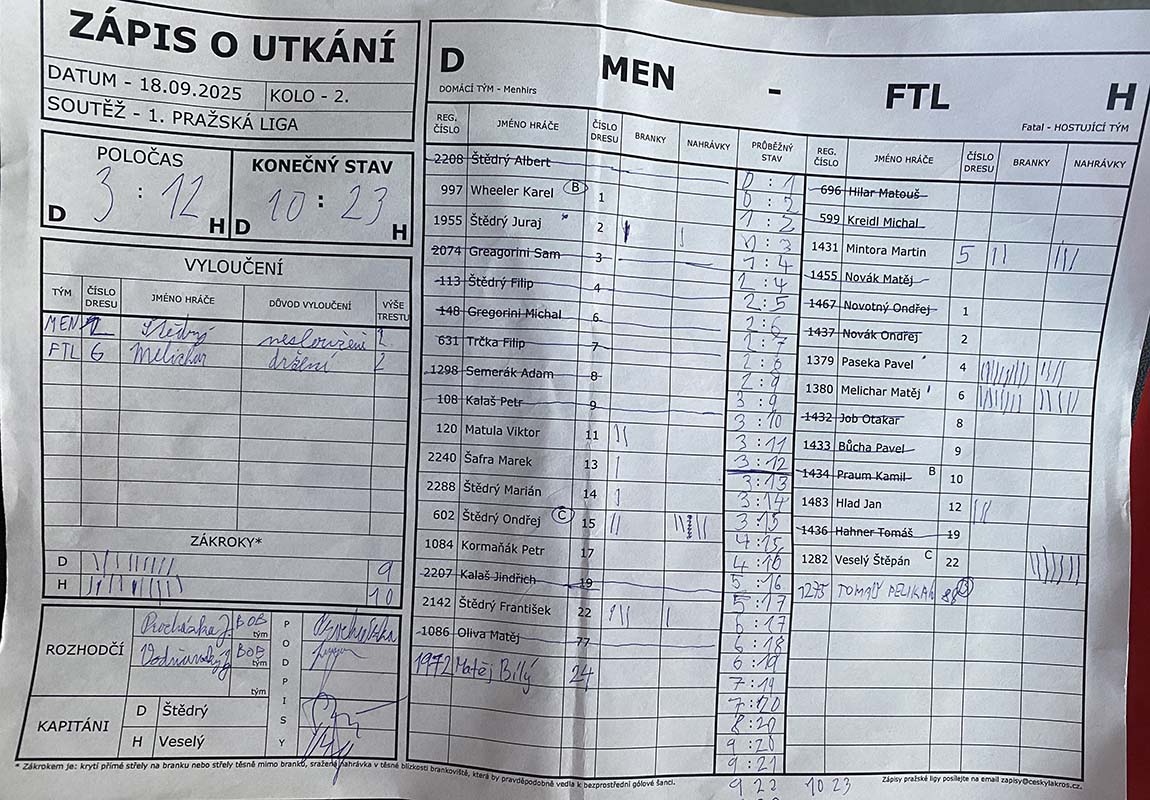 ZÁPIS O UTKÁNÍ
DATUM - 18.09.2025 KOLO - 2.
SOUTĚŽ - 1. PRAŽSKÁ LIGA
POLOČAS KONEČNÝ STAV
D 3 : 12 H D 10 : 23 H
VYLOUČENÍ
TÝM ČÍSLO DRESU JMÉNO HRÁČE DŮVOD VYLOUČENÍ VÝŠE TRESTU
MEN 2 Štědrý 2
FTL 6 Melichar držení 2
ZÁKROKY*
D 9
H 10
ROZHODČÍ Procházka J. BOB tým
BOB tým
tým
PODPISY
KAPITÁNI D Štědrý
H Veselý
D MEN - FTL H
DOMÁCÍ TÝM - Menhirs Fatal - HOSTUJÍCÍ TÝM
REG. ČÍSLO JMÉNO HRÁČE ČÍSLO DRESU BRANKY NAHRÁVKY
2208 Štědrý Albert
997 Wheeler Karel B 1
1955 Štědrý Juraj 2
2074 Greagorini Sam 3
113 Štědrý Filip 4
148 Gregorini Michal 6
631 Trčka Filip 7
1298 Semerák Adam 8
108 Kalaš Petr 9
120 Matula Viktor 11
2240 Šafra Marek 13
2288 Štědrý Marián 14
602 Štědrý Ondřej C 15
1084 Kormaňák Petr 17
2207 Kalaš Jindřich 19
2142 Štědrý František 22
1086 Oliva Matěj 77
1972 Matěj Bílý 24
PRŮBĚŽNÝ STAV
0 : 1
0 : 2
1 : 2
1 : 3
1 : 4
2 : 4
2 : 5
2 : 6
2 : 7
2 : 8
2 : 9
3 : 9
3 : 10
3 : 11
3 : 12
3 : 13
3 : 14
3 : 15
4 : 15
4 : 16
5 : 16
5 : 17
6 : 17
6 : 18
6 : 19
7 : 19
7 : 20
8 : 20
9 : 20
9 : 21
9 22 10 23
REG. ČÍSLO JMÉNO HRÁČE ČÍSLO DRESU BRANKY NAHRÁVKY
696 Hilar Matouš
599 Kreidl Michal
1431 Mintora Martin 5
1455 Novák Matěj
1467 Novotný Ondřej 1
1437 Novák Ondřej 2
1379 Paseka Pavel 4
1380 Melichar Matěj 6
1432 Job Otakar 8
1433 Bůcha Pavel 9
1434 Praum Kamil B 10
1483 Hlad Jan 12
1436 Hahner Tomáš 19
1282 Veselý Štěpán C 22
1275 TOMÁŠ PELIKÁN 88
* Zákrokem je: krytí přímé střely na branku nebo střely těsně mimo branku, sražená nahrávka v těsné blízkosti brankoviště, která by pravděpodobně vedla k bezprostřední gólové šanci.
Zápisy pražské ligy posílejte na email zapisy@ceskylakros.cz.